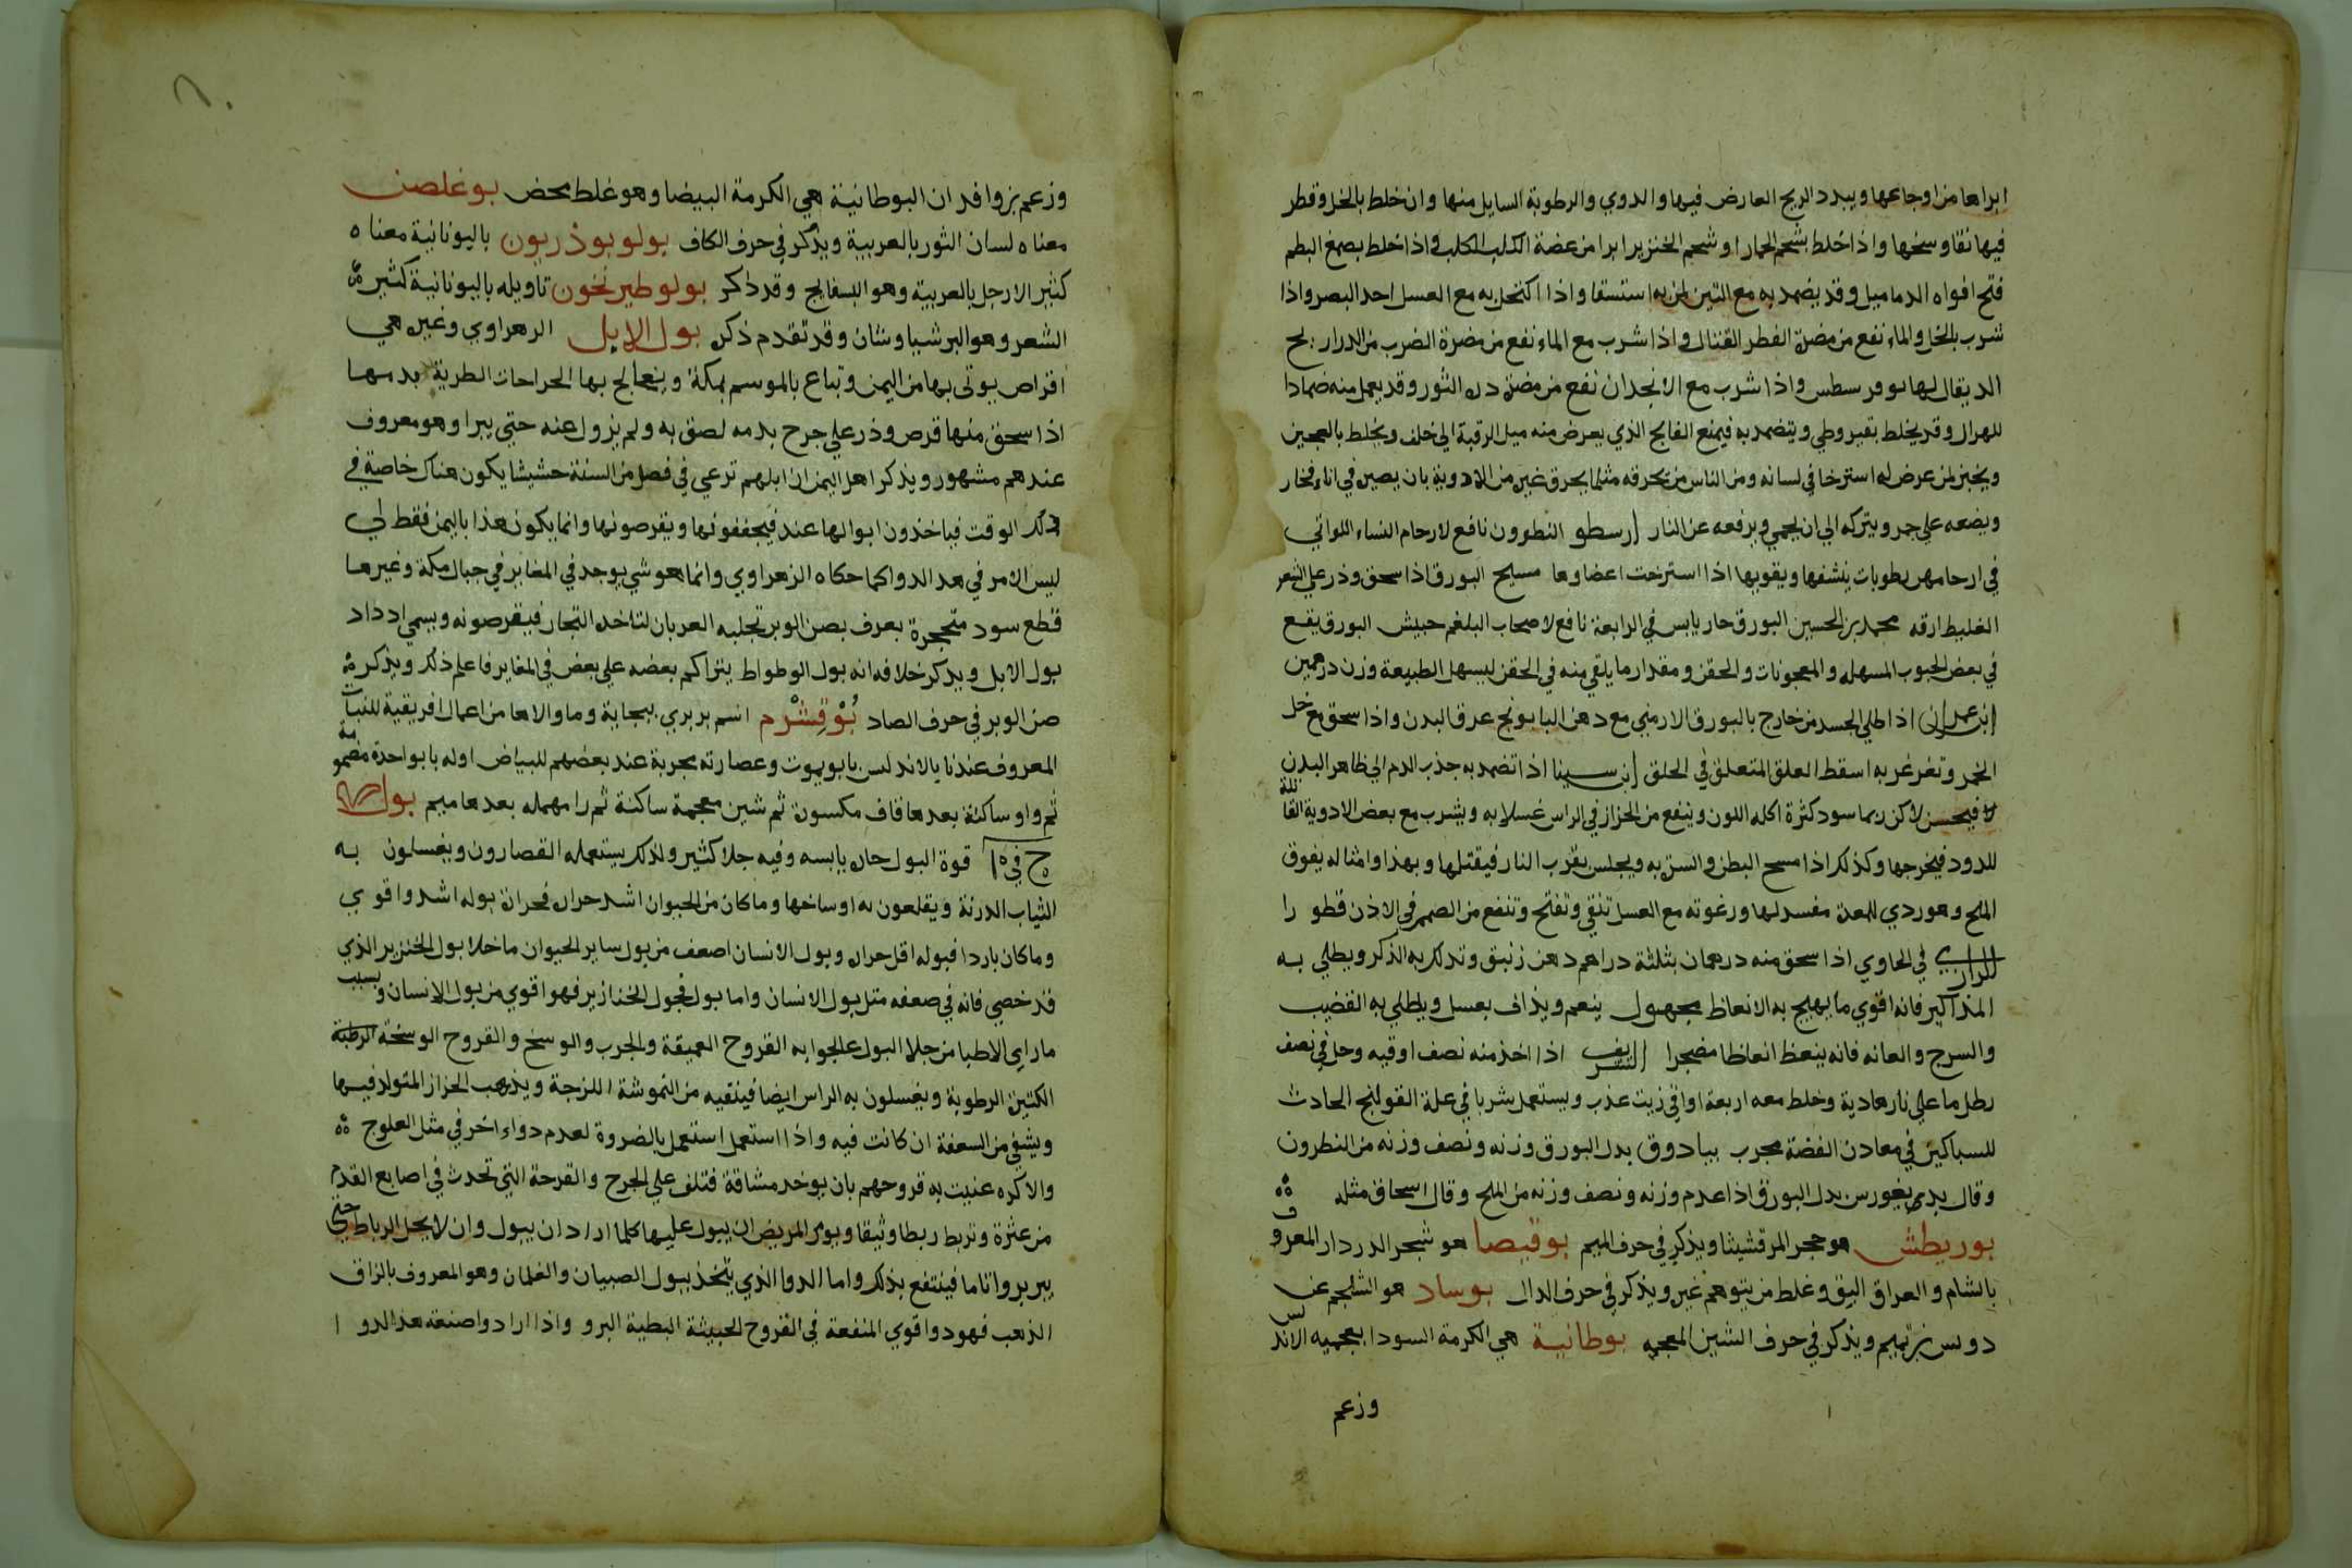 ابراها من اوجاعها ويبدد الريح العارض فيها والدوي والرطوبة السايل منها وان خلط بالخل وقطر
فيها نقا وسخها واذا خلط بشحم الحمار او شحم الخنزير ابرا من عضة الكلب الكلب واذا خلط بصمغ البطم
فتح افواه الدماميل وقد يضمد به مع التين لمن به استسقا واذا اكتحل به مع العسل احد البصر واذا
شرب بالخل والماء نفع من مضرة الفطر القتال واذا شرب مع الماء نفع من مضرة الضرب من الدراريح
الذي يقال لها بوفرسطس واذا شرب مع الانجدان نفع من مضرة دم الثور وقد يعمل منه ضمادا
للهزال وقد يخلط بقيروطي ويتضمد به فيمنع الفالج الذي يعرض منه ميل الرقبة الي خلف ويخلط بالعجين
ويخبز لمن عرض له استرخا في لسانه ومن الناس من يحرقه مثلما يحرق غيره من الادوية بان يصير في اناء فخار
ويضعه علي جمر ويتركه الي ان يحمي ويرفعه عن النار ارسطو النطرون نافع لارحام النساء اللواتي
في ارحامهن رطوبات ينشفها ويقويها اذا استرخت اعضاوها مسيح البورق اذا سحق وذر علي الشعر
الغليظ ارقه محمد بن الحسين البورق حار يابس في الرابعة نافع لاصحاب البلغم حبيش البورق يقع
في بعض الحبوب المسهله والمعجونات والحقن ومقدار ما يلقي منه في الحقن ليسهل الطبيعة وزن درهمين
ابن عمران اذا طلي الجسد من خارج بالبورق الارمني مع دهن البابونج عرق البدن واذا سحق مع خل
الخمر وتغرغر به اسقط العلق المتعلق في الحلق ابن سينا اذا تضمد به جذب الدم الي ظاهر البدن
فيحسن لاكن ربما سود كثرة اكله اللون وينفع من الحزاز في الراس غسلا به ويشرب مع بعض الادوية القاتلة
للدود فيخرجها وكذلك اذا مسح البطن والسرة به ويجلس بقرب النار فيقتلها وبهذا وامثاله يفوق
الملح وهو ردي للمعدة مفسد لها ورغوته مع العسل تنقي وتفتح وتنفع من الصمم في الاذن قطورا
الرازي في الحاوي اذا سحق منه درهمان بثلثة دراهم دهن زنبق وتدلك به الذكر ويطلي به
المذاكير فانه اقوي ما يهيج به الانعاظ مجهول ينعم ويذاف بعسل ويطلي به القضيب
والسرج والعانه فانه ينعظ انعاظا مضجرا الشريف اذا اخذ منه نصف اوقيه وحل في نصف
رطل ما علي نار هادية وخلط معه اربعة اواقي زيت عذب ويستعمل شربا في علة القولنج الحادث
للسباكين في معادن الفضة مجرب بيادوق بدل البورق وزنه ونصف وزنه من النطرون
وقال بديغورس بدل البورق اذا عدم وزنه ونصف وزنه من الملح وقال اسحاق مثله
بوريطش هو حجر المرقشيثا ويذكر في حرف الميم بوقيصا هو شجر الدردار المعروف
بالشام والعراق البق وغلط من يتوهم غيره ويذكر في حرف الدال بوساد هو الشلجم عن
دونس بن تميم ويذكر في حرف الشين المعجمه بوطانية هي الكرمة السودا بعجميه الاندلس
وزعم
وزعم بن وافد ان البوطانية هي الكرمة البيضا وهو غلط محض بوغلصن
معناه لسان الثور بالعربية ويذكر في حرف الكاف بولوبوذريون باليونانية معناه
كثير الارجل بالعربية وهو البسفايج وقد ذكر بولوطيرنخون تاويله باليونانية كثير
الشعر وهو البرشياوشان وقد تقدم ذكره بول الابل الزهراوي وغيره هي
اقراص يوتى بها من اليمن وتباع بالموسم بمكة ويعالج بها الجراحات الطرية بدمها
اذا سحق منها قرص وذر علي جرح بدمه لصق به ولم يزول عنه حتي يبرا وهو معروف
عندهم مشهور ويذكر اهل اليمن ان ابلهم ترعي في فصل من السنة حشيشا يكون هناك خاصة في
ذلك الوقت فياخذون ابوالها عند فيجففونها ويقرصونها وانما يكون هذا باليمن فقط لي
ليس الامر في هذ الدوا كما حكاه الزهراوي وانما هو شي يوجد في المغاير في جبال مكة وغيرها
قطع سود متحجرة يعرف بصن الوبر تجلبه العربان لتاخذ التجار فيقرصونه ويسمي اذ ذاك
بول الابل ويذكر خلافه انه بول الوطواط يتراكم بعضه علي بعض في المغاير فاعلم ذلك ويذكر
صن الوبر في حرف الصاد بُوْقِشْرم اسم بربري ببجاية وما والاها من اعمال افريقية للنبات
المعروف عندنا بالاندلس بابو يموت وعصارته مجربة عند بعضهم للبياض اوله با بواحدة مضمومة
ثم واو ساكنة بعدها قاف مكسورة ثم شين معجمة ساكنة ثم را مهمله بعدها ميم بول
ج في ١٥ قوة البول حارة يابسه وفيه جلا كثير ولذلك يستعمله القصارون ويغسلون به
الثياب الدرنة ويقلعون به اوساخها وما كان من الحيوان اشد حرارة فحرارة بوله اشد واقوي
وما كان باردا فبوله اقل حرارة وبول الانسان اضعف من بول ساير الحيوان ما خلا بول الخنزير الذي
قد خصي فانه في ضعفه مثل بول الانسان واما بول فحول الخنازير فهو اقوي من بول الانسان وبسبب
ما راي الاطبا من جلا البول عالجوا به القروح العميقة والجرب والوسخ والقروح الوسخة الرطبة
الكثيرة الرطوبة ويغسلون به الراس ايضا فينقيه من النموشة اللزجة ويذهب الحزاز المتولد فيها
ويشفي من السعفة ان كانت فيه واذا استعمل استعمل بالضروة لعدم دواء اخر في مثل العلوج
والاكره عنيت به قروحهم بان يوخد مشاقة فتلف علي الجرح والقرحة التي تحدث في اصابع القدم
من عثرة وتربط ربطا وثيقا ويومر المريض ان يبول عليها كلما اراد ان يبول وان لا يحل الرباط حتي
يبر بروا تاما فينتفع بذلك واما الدوا الذي يتخذ ببول الصبيان والغلمان وهو المعروف بالزاق
الذهب فهو دوا قوي المنفعة في القروح الخبيثة البطية البرو واذا ارادوا صنعة هذ الدوا